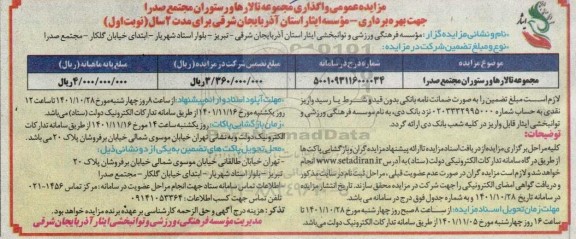 مزایده عمومی واگذاری مجموعه تالارها و رستوران مجتمع صدرا
جهت بهره برداری - مؤسسه ایثار استان آذربایجان شرقی برای مدت ۲ سال (نوبت اول)
-نام و نشانی مزایده گزار: مؤسسه فرهنگی ورزشی و توانبخشی ایثار آذربایجان شرقی - تبریز - بلوار استاد شهریار - ابتدای خیابان گلکار - مجتمع صدرا
-نوع و مبلغ تضمین شرکت در مزایده:
موضوع مزایده
شماره درج در سامانه
مبلغ تضمین شرکت در مزایده (ریال)
مبلغ پایه ماهیانه (ریال)
مجموعه تالارها و رستوران مجتمع صدرا
۵۰۰۱۰۹۳۱۱۶۰۰۰۰۳۴
۳/۳۶۰/۰۰۰/۰۰۰ ریال
۴/۰۰۰/۰۰۰/۰۰۰ ریال
لازم است مبلغ تضمین را به صورت ضمانت نامه بانکی بدون قید و شرط یا رسید واریز
نقدی به حساب شماره ۰۲۰۳۳۲۹۹۵۰۰۰ نزد بانک دی، به نام موسسه فرهنگی ورزشی و
توانبخشی ایثار قابل واریز در کلیه شعب بانک دی ارائه گردد
توضیحات:
کلیه مراحل برگزاری مزایده از دریافت اسناد مزایده تا ارائه پیشنهاد مزایده گران و بازگشایی پاکت ها
از طریق درگاه سامانه تدارکات الکترونیکی دولت (ستاد) به آدرس www.setadiran.ir انجام
خواهد شد و لازم است مزایده گران در صورت عدم عضویت قبلی، مراحل ثبت نام در سایت مذکور
و دریافت گواهی امضای الکترونیکی را جهت شرکت در مزایده محقق سازند. تاریخ انتشار مزایده
در سامانه تاریخ ۱۴۰۱/۱۰/۲۸ و به شماره جدول فوق درج در سامانه می باشد.
مهلت زمان تحویل اسناد مزایده: از ساعت ۸ صبح روز چهارشنبه مورخ ۱۴۰۱/۱۰/۲۸ تا
ساعت ۱۶ روز چهارشنبه مورخ ۱۴۰۱/۱۱/۰۵ از طریق سامانه تدارکات الکترونیک دولت می باشد.
-مهلت آپلود اسناد و ارائه پیشنهاد: از ساعت ۸ روز چهارشنبه مورخ ۱۴۰۱/۱۰/۲۸ تا ساعت ۱۲
روز یکشنبه مورخ ۱۴۰۱/۱۱/۱۶ از طریق سامانه تدارکات الکترونیک دولت (ستاد) می باشد.
-زمان بازگشایی پاکات: روز یکشنبه ساعت ۱۴ مورخ ۱۴۰۱/۱۱/۱۶ از طریق سامانه تدارکات
الکترونیک دولت (ستاد) به آدرس تهران خیابان موسوی شمالی خیابان پرفروشان پلاک ۲۰ می باشد.
-محل تحویل پاکت های تضمین به یکی از دو نشانی ذیل:
-تهران خیابان طالقانی خیابان موسوی شمالی خیابان پرفروشان پلاک ۲۰
-تبریز - بلوار استاد شهریار - ابتدای خیابان گلکار - مجتمع صدرا
-اطلاعات تماس سامانه ستاد جهت انجام مراحل عضویت در سامانه: مرکز تماس ۰۲۱-۱۴۵۶
تلفن تماس جهت کسب اطلاعات: ۰۹۱۴۱۰۵۳۳۶۴
تذکر: هزینه درج آگهی و حق الزحمه کارشناسی بر عهده برنده مزایده خواهد بود.
مدیریت مؤسسه فرهنگی، ورزشی و توانبخشی ایثار آذربایجان شرقی